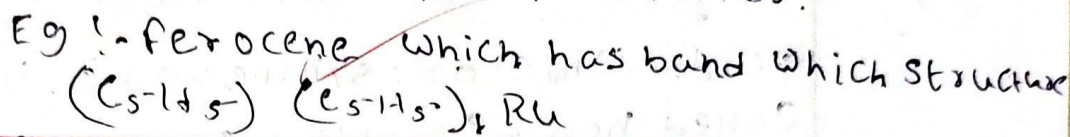 Eg :- ferocene which has band which structure
(C5-H5-) (C5-H5-), Ru